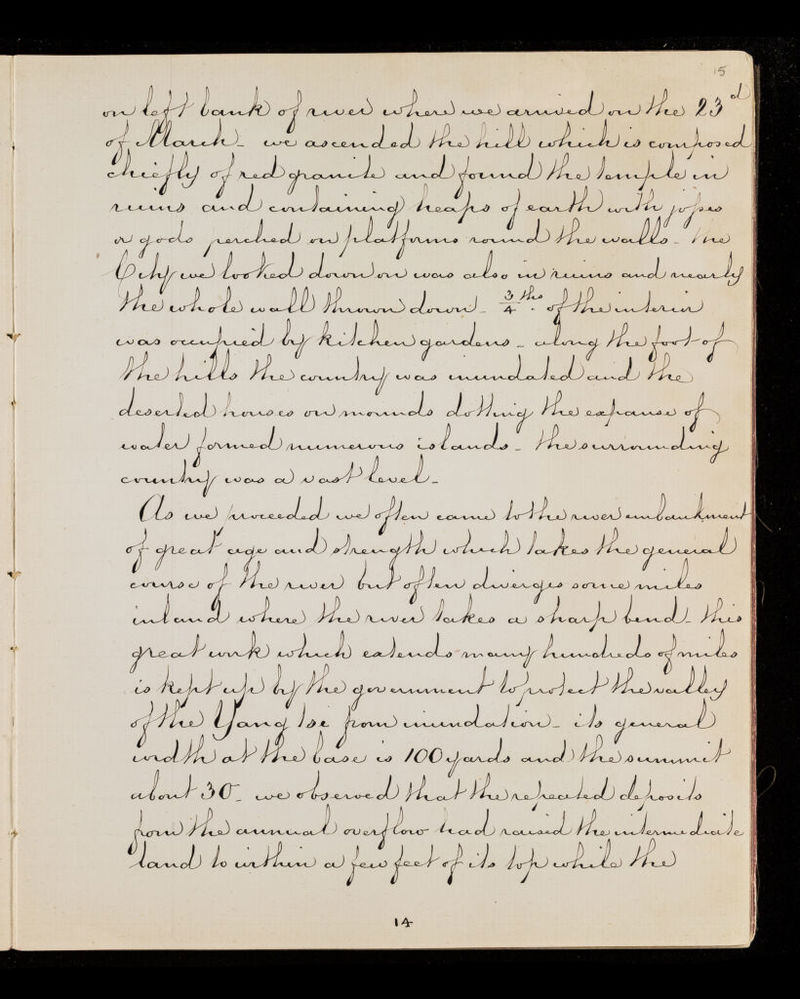 15
on left bank of river where we arrived on the 23d
of March - we ascended the hill which is composed
chiefly of red granite and found the temple in
ruins and containing heaps of earth with joses
or gods perched on platforms round the walls - The
City we looked down on was also in ruins and nearly
the whole wall thrown down - 3/4 ths of the interior
was occupied by kitchen gardens - along the foot of
the hills the country was inundated and the
deserted houses on mounds dotting the expanse of
water formed numerous islands - the surrounding
country was a vast level -
As we proceeded we often came to the river embankment
of great age and strength which takes the general
course of the river but often diverges some miles
inland where the river takes a sharp bend - this
great work which extends many hundreds of miles
is kept up by the government to protect the valley
of the Yang tse from inundation - its general
width at the base is 100 yards and the summit
about 30 - we observed that the repeated deposits
from the annual overflow had raised the intermediate
land to within a few feet of its top while the
14